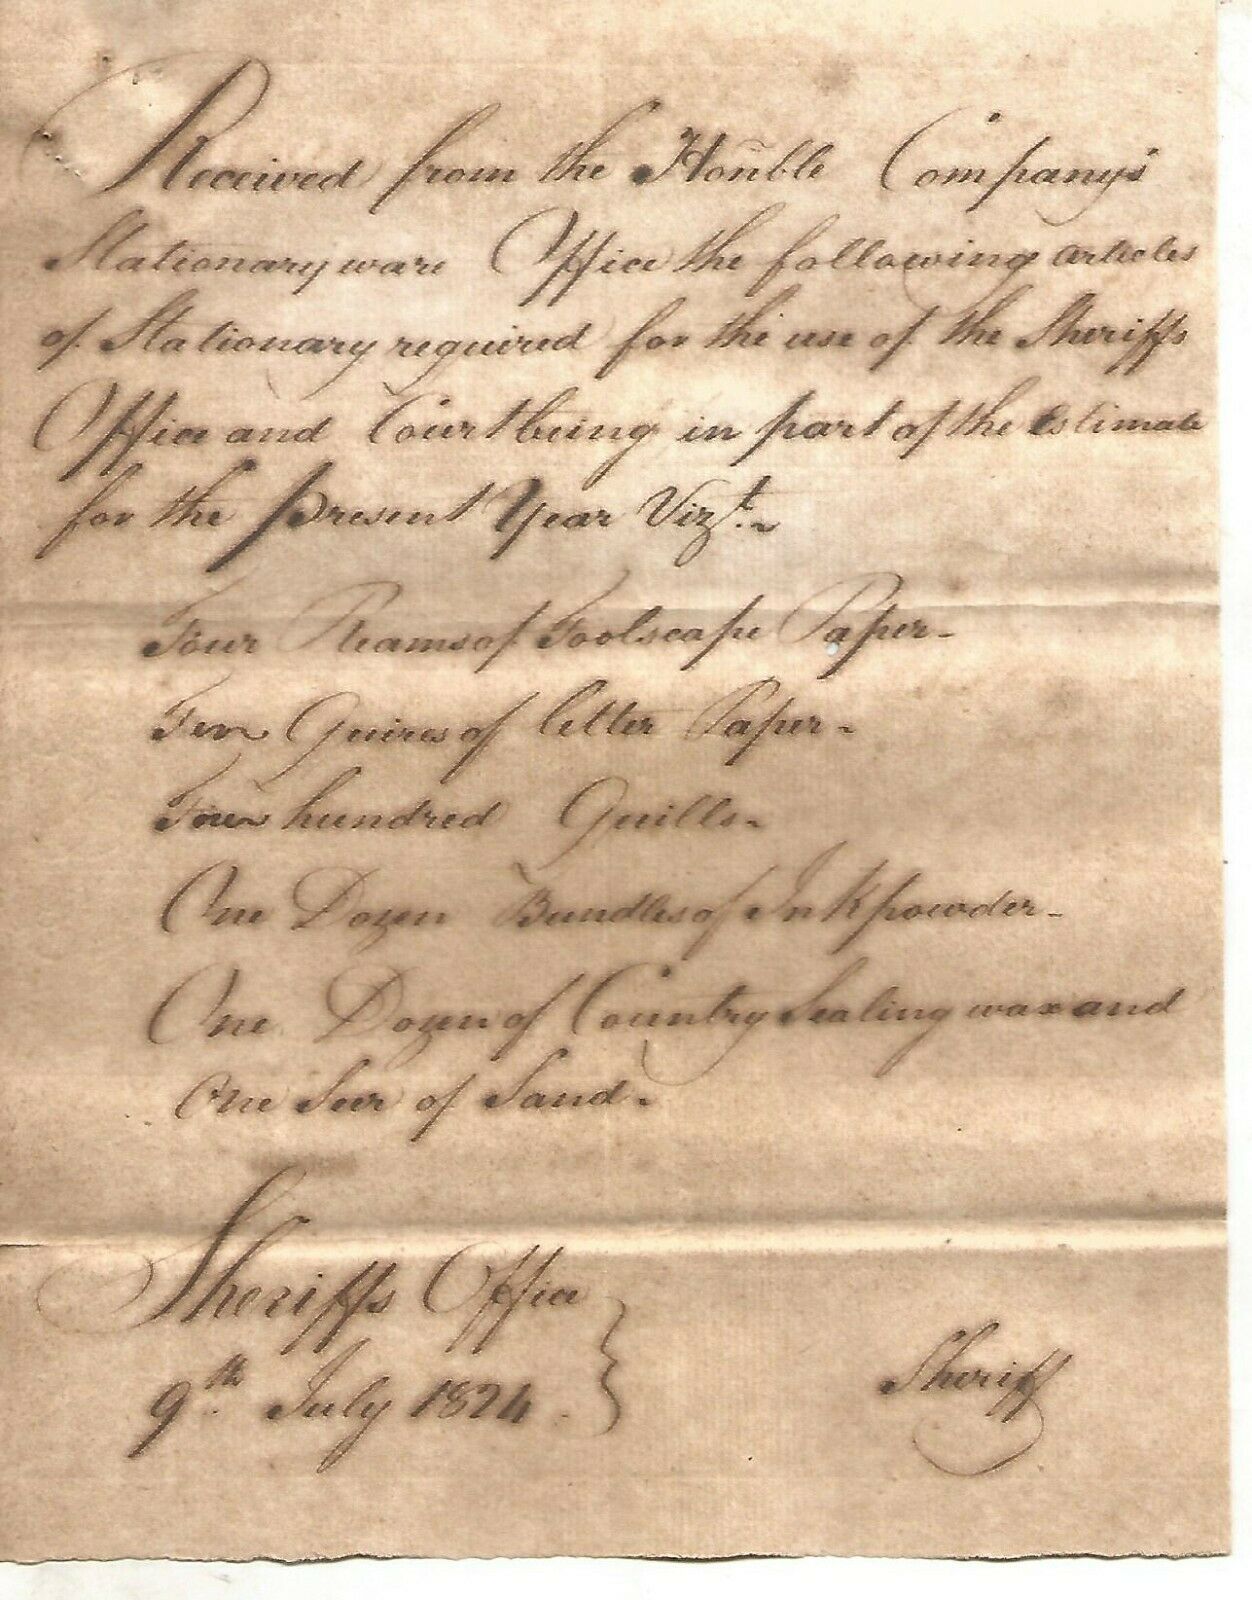 Received from the Honble Company's
Stationaryware Office the following articles
of Stationary required for the use of the Sheriffs
Office and Court being in part of the Estimate
for the Present Year Vizt.
Four Reams of Foolscape Paper-
Ten Quires of letter Paper-
Four hundred Quills-
One Dozen Bundles of Inkpowder-
One Dozen of Country Sealing wax and
One Seer of Sand-
Sheriffs Office
9th July 1824
Sheriff